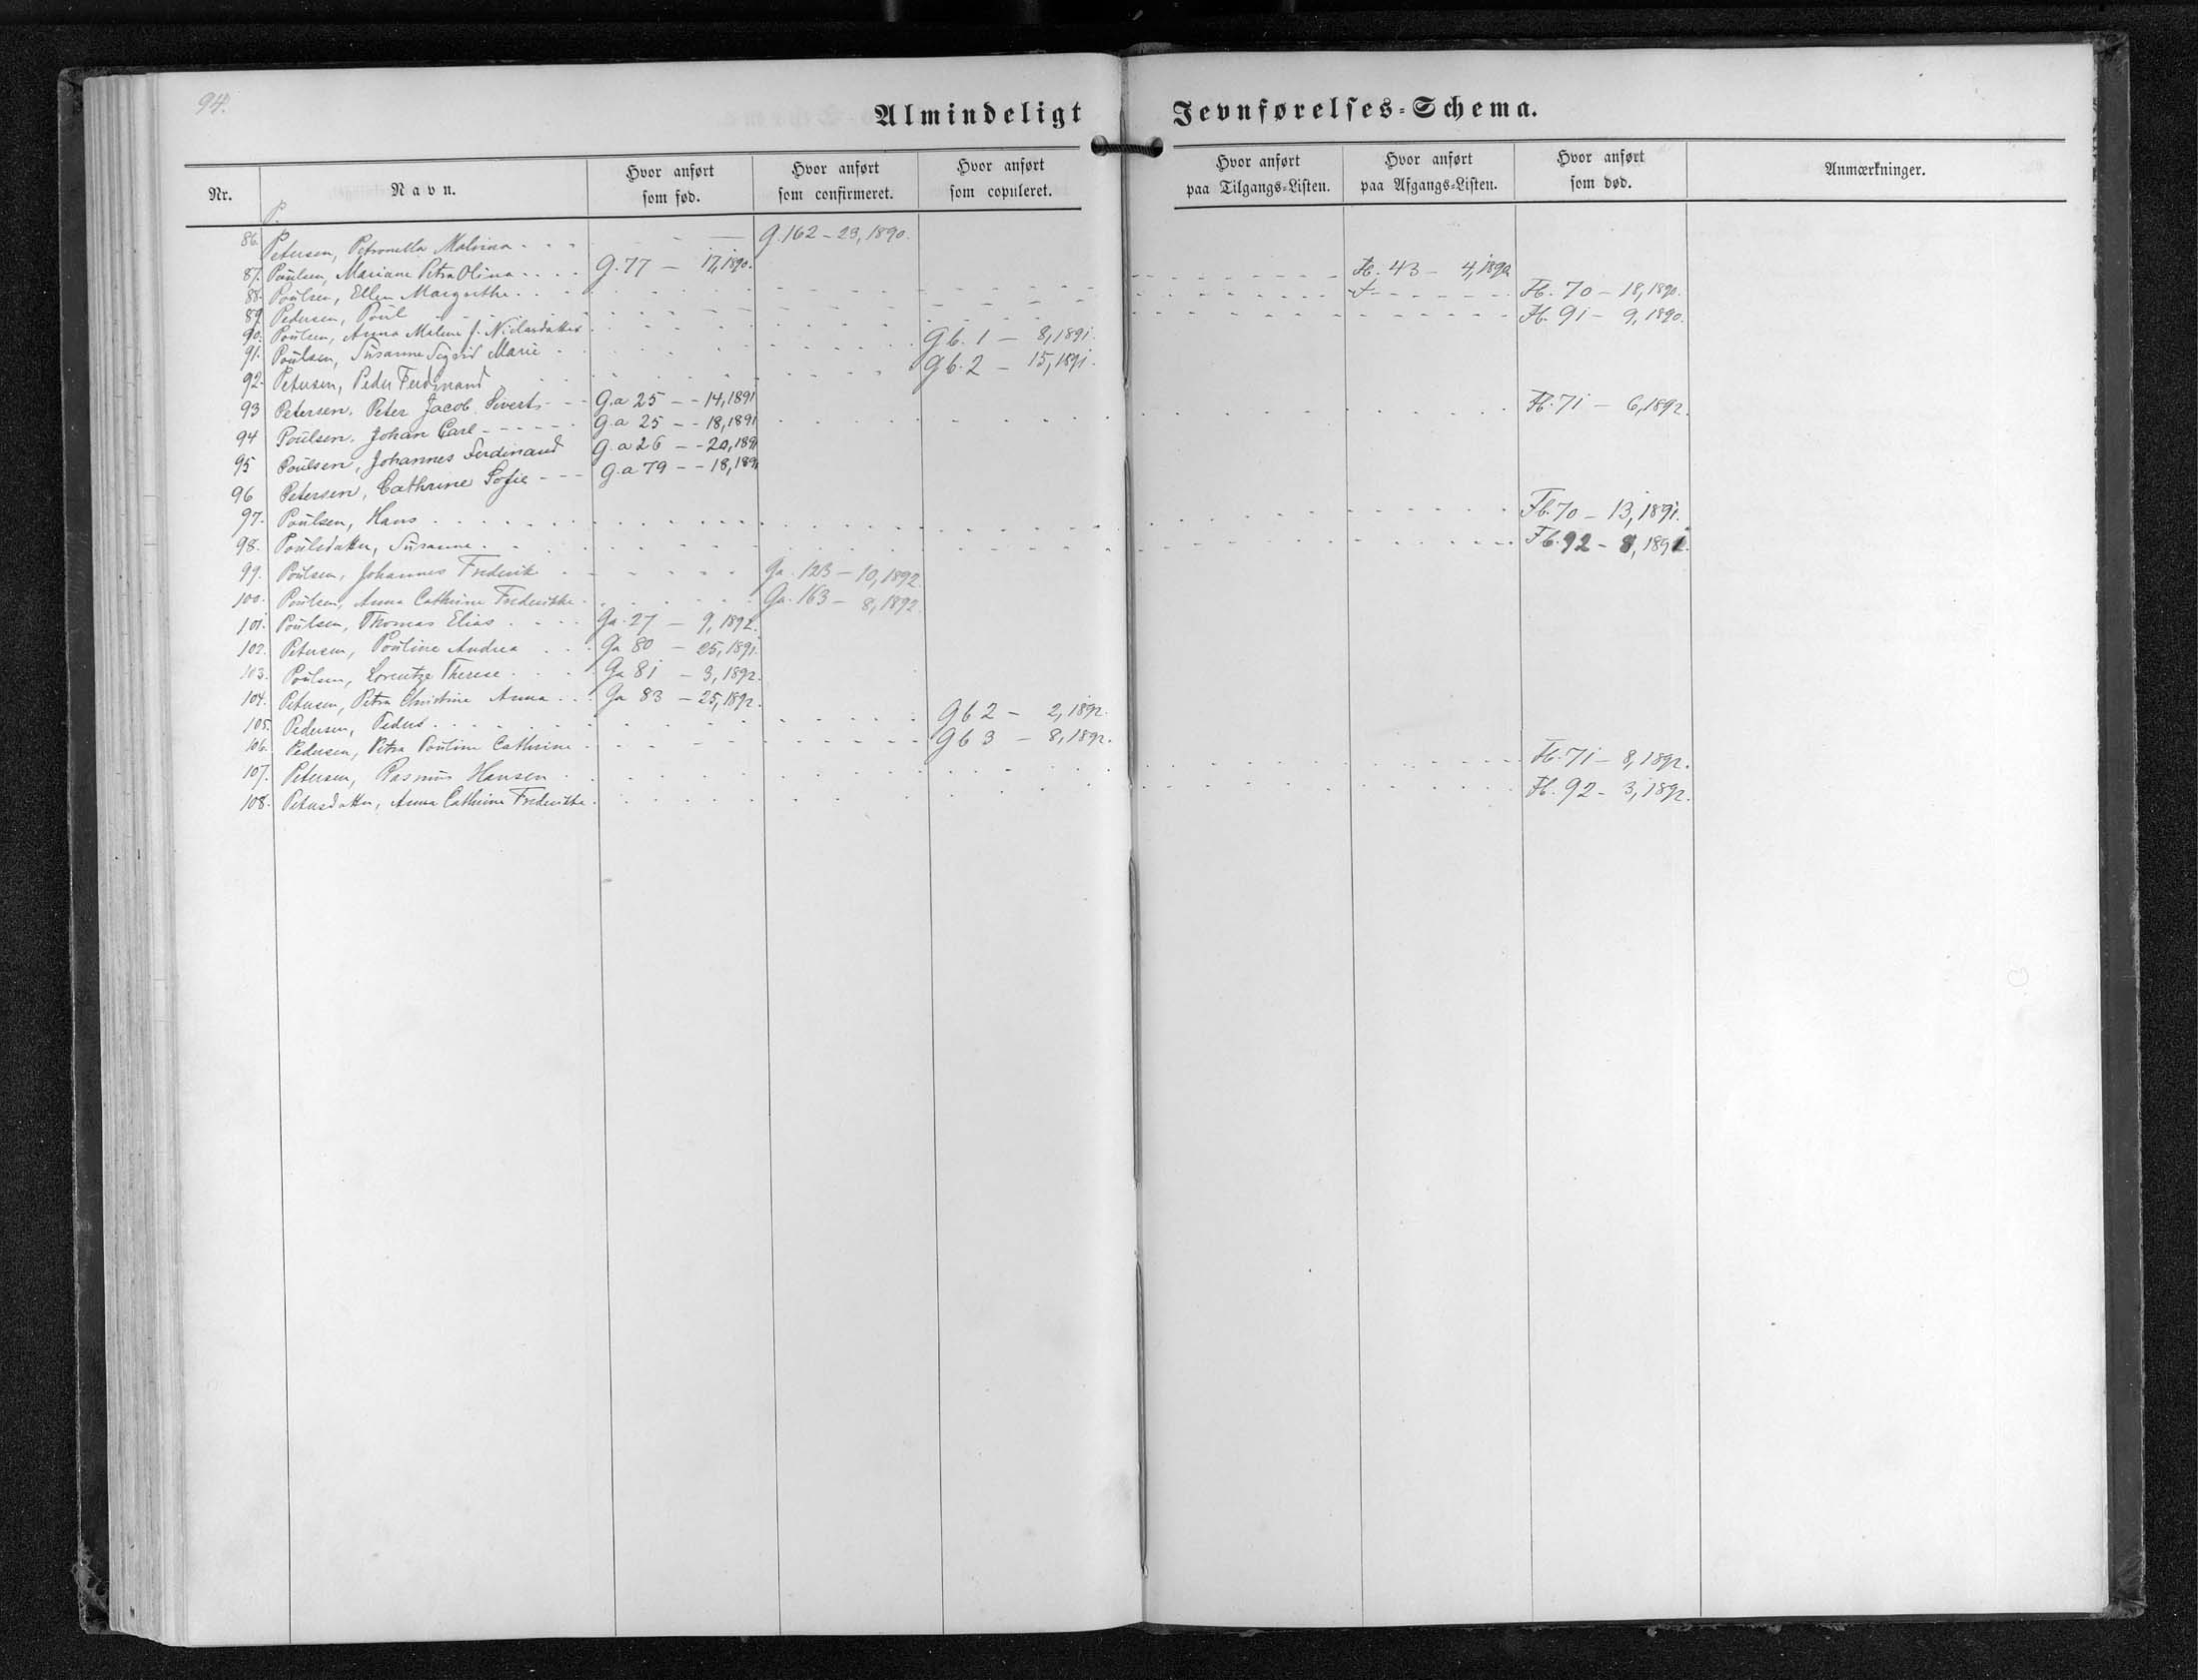 94.
Almindeligt Jevnførelses-Schema.
Nr. Navn. Hvor anført som fød. Hvor anført som confirmeret. Hvor anført som copuleret. Hvor anført paa Tilgangs-Listen. Hvor anført paa Afgangs-Listen. Hvor anført som død. Anmærkninger.
P.
86. Petersen, Petronella Malvina - - - G. 162 - 23, 1890.
87. Poulsen, Mariane Petra Olina - - - - G. 77 - 17, 1890. Fb. 43 - 4, 1890
88. Poulsen, Ellen Margrethe. Fb. 70 - 18, 1890.
89. Pedersen, Poul Fb. 91 - 9, 1890.
90. Poulsen, Anna Malene f. Niclasdatter Gb. 1 - 8, 1891.
91. Poulsen, Susanne Sigrid Marie Gb. 2 - 15, 1891.
92. Petersen, Peder Ferdinand
93 Petersen, Peter Jacob Sivert - - - G.a 25 - - 14, 1891 Fb. 71 - 6, 1892.
94 Poulsen, Johan Carl - - - - - G.a 25 - - 18, 1891
95 Poulsen, Johannes Ferdinand G.a 26 - - 20, 1891
96 Petersen, Cathrine Sofie - - - G.a 79 - - 18, 1891
97. Poulsen, Hans Fb. 70 - 13, 1891.
98. Poulsdatter, Susanne Fb. 92 - 8, 1891.
99. Poulsen, Johannes Frederik Ga. 123 - 10, 1892.
100. Poulsen, Anna Cathrine Frederikke Ga. 163 - 8, 1892.
101. Poulsen, Thomas Elias Ga. 27 - 9, 1892.
102. Petersen, Pouline Andrea Ga 80 - 25, 1891.
103. Poulsen, Lorentze Therese Ga 81 - 3, 1892.
104. Petersen, Petra Christine Anna Ga 83 - 25, 1892.
105. Pedersen, Peder Gb 2 - 2, 1892.
106. Pedersen, Petra Pouline Cathrine Gb 3 - 8, 1892.
107. Petersen, Rasmus Hansen Fb. 71 - 8, 1892.
108. Petersdatter, Anna Cathrine Frederikke Fb. 92 - 3, 1892.